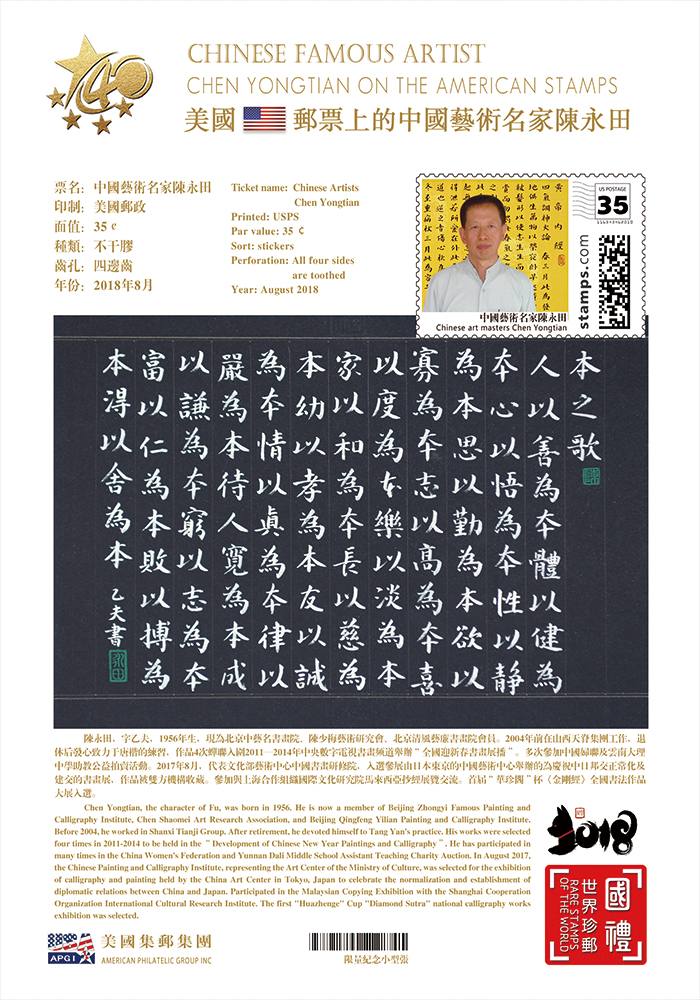 40
CHINESE FAMOUS ARTIST
CHEN YONGTIAN ON THE AMERICAN STAMPS
美國 郵票上的中國藝術名家陳永田
票名: 中國藝術名家陳永田
印制: 美國郵政
面值: 35¢
種類: 不干膠
齒孔: 四邊齒
年份: 2018年8月
Ticket name: Chinese Artists
Chen Yongtian
Printed: USPS
Par value: 35 ¢
Sort: stickers
Perforation: All four sides
are toothed
Year: August 2018
黃帝內經
US POSTAGE
35
stamps.com
中國藝術名家陳永田
Chinese art masters Chen Yongtian
本之歌
人以善為本體以健為
本心以悟為本性以靜
為本思以勤為本欲以
寡為本志以高為本喜
以度為本樂以淡為本
家以和為本長以慈為
本幼以孝為本友以誠
為本情以真為本律以
嚴為本待人寬為本成
以謙為本窮以志為本
富以仁為本敗以搏為
本得以舍為本 乙夫書
永田
陳永田，字乙夫，1956年生，現為北京中藝名書畫院、陳少梅藝術研究會、北京清風藝廉書畫院會員。2004年前在山西天脊集團工作，退
休后發心致力于唐楷的練習，作品4次蟬聯入圍2011—2014年中央數字電視書畫頻道舉辦＂全國迎新春書畫展播＂。多次參加中國婦聯及雲南大理
中學助教公益拍賣活動。2017年8月，代表文化部藝術中心中國書畫研修院，入選參展由日本東京的中國藝術中心舉辦的為慶祝中日邦交正常化及
建交的書畫展，作品被雙方機構收藏。參加與上海合作組織國際文化研究院馬來西亞抄經展覽交流。首屆＂華珍閣＂杯《金剛經》全國書法作品
大展入選。
Chen Yongtian, the character of Fu, was born in 1956. He is now a member of Beijing Zhongyi Famous Painting and
Calligraphy Institute, Chen Shaomei Art Research Association, and Beijing Qingfeng Yilian Painting and Calligraphy Institute.
Before 2004, he worked in Shanxi Tianji Group. After retirement, he devoted himself to Tang Yan's practice. His works were selected
four times in 2011-2014 to be held in the ＂Development of Chinese New Year Paintings and Calligraphy＂. He has participated in
many times in the China Women's Federation and Yunnan Dali Middle School Assistant Teaching Charity Auction. In August 2017,
the Chinese Painting and Calligraphy Institute, representing the Art Center of the Ministry of Culture, was selected for the exhibition
of calligraphy and painting held by the China Art Center in Tokyo, Japan to celebrate the normalization and establishment of
diplomatic relations between China and Japan. Participated in the Malaysian Copying Exhibition with the Shanghai Cooperation
Organization International Cultural Research Institute. The first "Huazhenge" Cup "Diamond Sutra" national calligraphy works
exhibition was selected.
2018
國禮
世界珍郵
RARE STAMPS
OF THE WORLD
APGI
美國集郵集團
AMERICAN PHILATELIC GROUP INC
限量紀念小型張